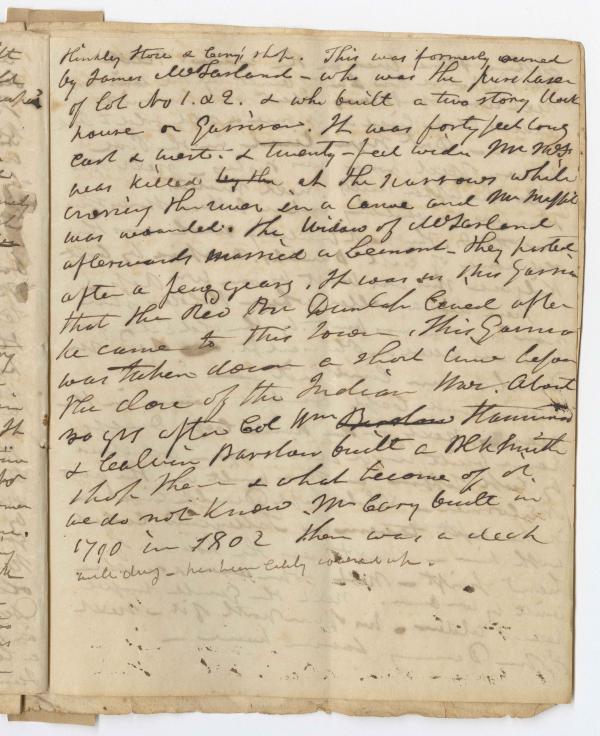 Hinkley Store & Cary's shop. This was formerly owned
by James McFarland - who was the purchaser
of Lot No 1. & 2. & who built a two story block
house or Garrison. It was forty feet long
East & west. & twenty-feet wide Mr McF.
was killed by the at the narrows while
crossing the river in a canoe and Mr
was wounded. The Widow of McFarland
afterwards married a - they parted
after a few years. It was in this Garrison
that the Rev Mr Dunlap lived after
he came to this town. This Garrison
was taken down a short time before
the close of the Indian War. About
30 yrs after Col Wm Barstow
& Calvin Barstow built a Blk Smith
shop there & what become of it
we do not know. Mr Cary built in
1790 in 1802 there was a
well dug - has been lately covered up.